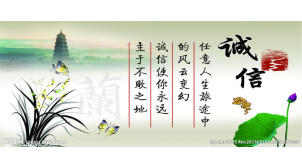 诚信
任意人生旅途中
的风云变幻
诚信使你永远
立于不败之地
蘭